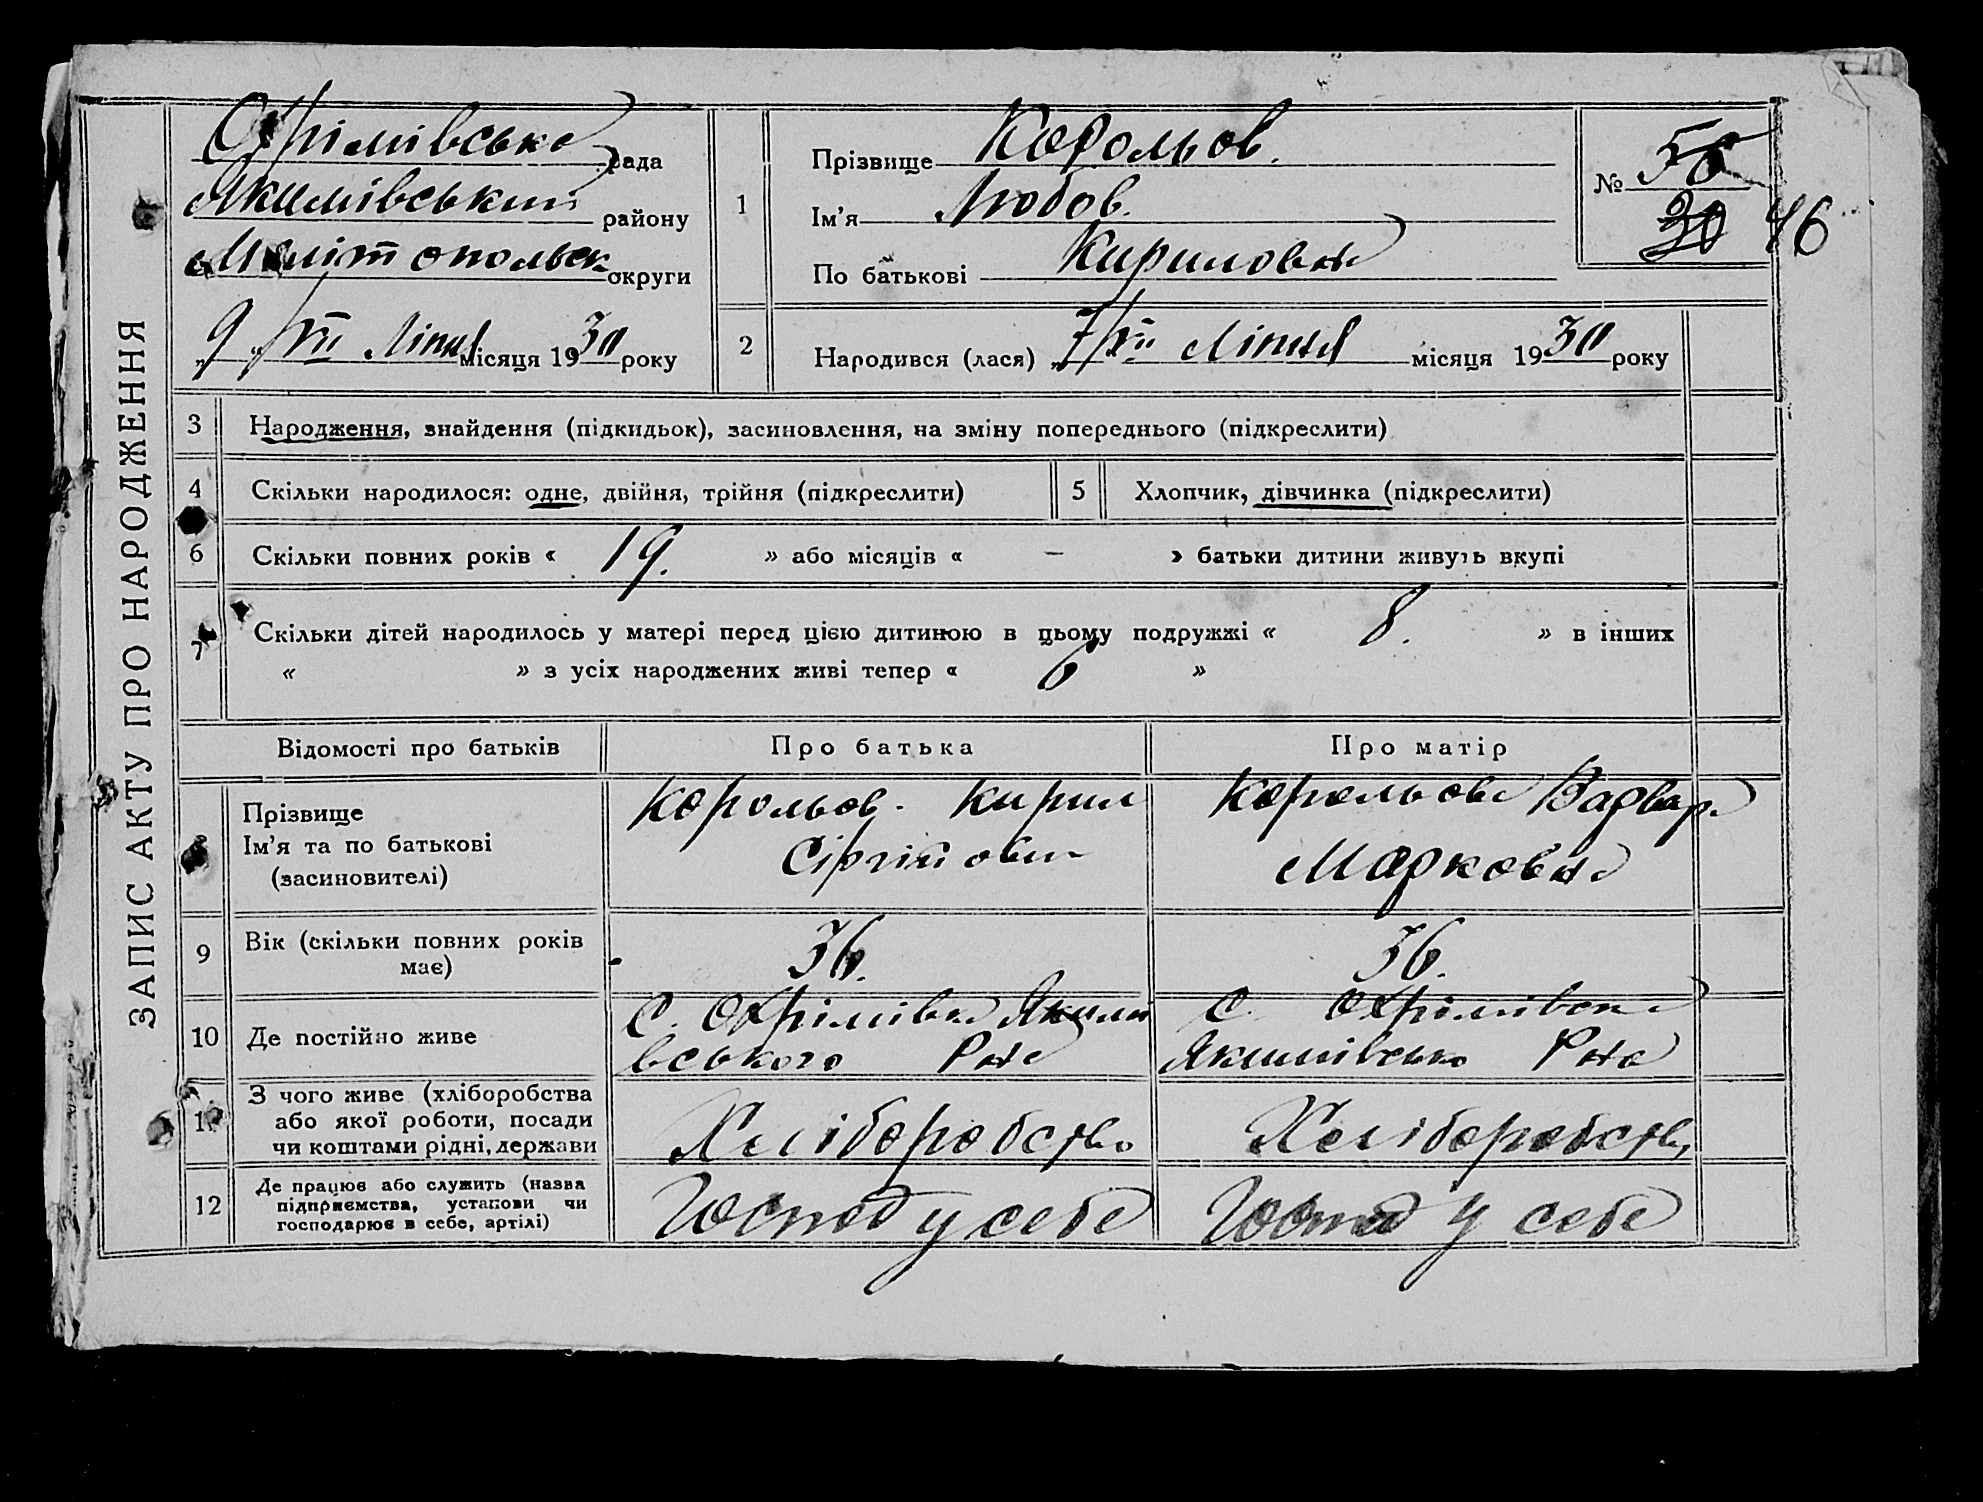 ЗАПИС АКТУ ПРО НАРОДЖЕННЯ
Охрімівська рада
Якимівський району
Мелітопольськ округи
„9“/VII Липня місяця 1930 року
1
Прізвище Корольов.
Ім'я Любов.
По батькові Кириловна
№ 58
30 46
2
Народився (лася) „7/VII Липня місяця 1930 року
3 Народження, знайдення (підкидьок), засиновлення, на зміну попереднього (підкреслити)
4 Скільки народилося: одне, двійня, трійня (підкреслити)
5 Хлопчик, дівчинка (підкреслити)
6 Скільки повних років « 19. » або місяців « – » батьки дитини живуть вкупі
7 Скільки дітей народилось у матері перед цією дитиною в цьому подружжі « 8. » в інших
« » з усіх народжених живі тепер « 6 »
Відомості про батьків Про батька Про матір
8 Прізвище
Ім'я та по батькові
(засиновителі)
Корольов. Кирил
Сіргійович
Корольова Варвар.
Марковна
9 Вік (скільки повних років
має)
36. 36.
10 Де постійно живе
С. Охрімівка Якими
вського Рна
С. Охрімівка
Якимівсько Рна
11 З чого живе (хліборобства
або якої роботи, посади
чи коштами рідні, держави
Хліборобство Хліборобство
12 Де працює або служить (назва
підприємства, установи чи
господарює в себе, артілі)
Господ у себе Господ у себе